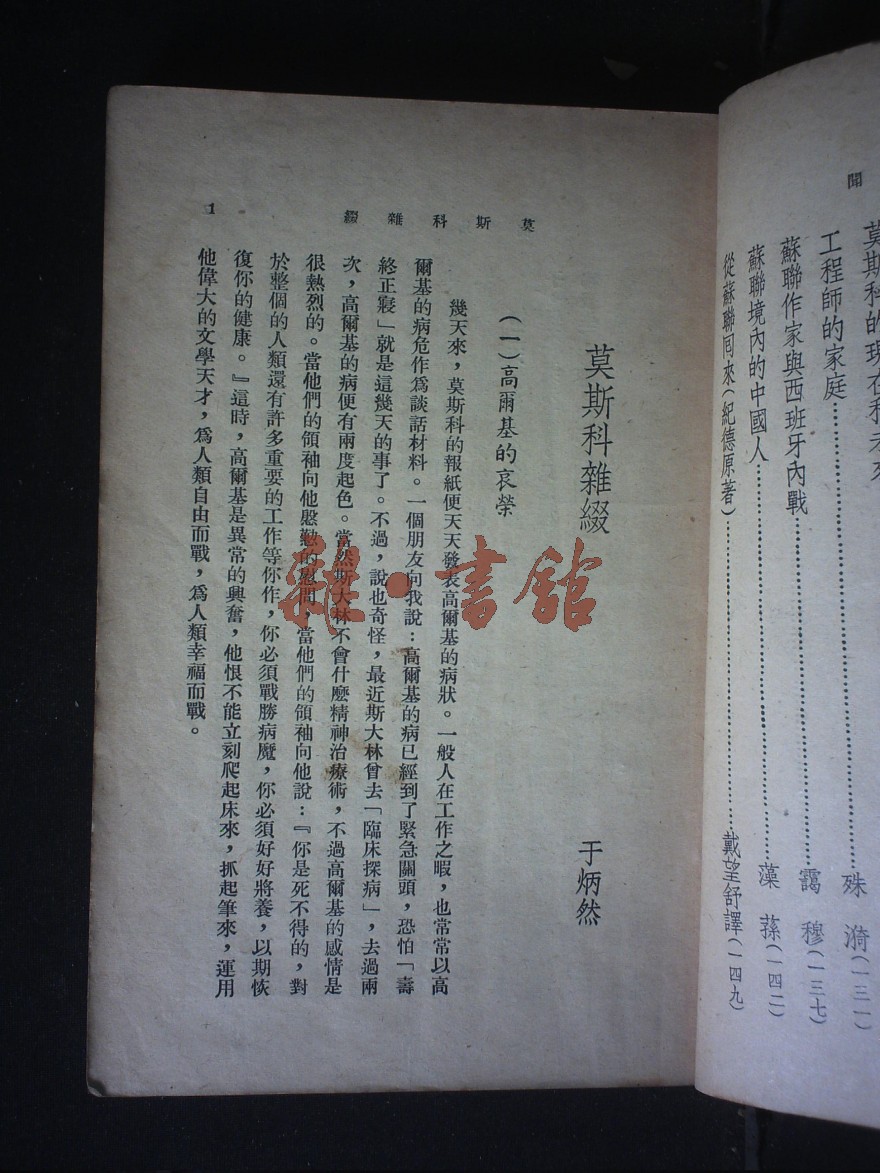 聞
莫斯科的現在和未來
工程師的家庭……殊漪(一三一)
蘇聯作家與西班牙內戰……靄穆(一三七)
蘇聯境內的中國人……藻蓀(一四二)
從蘇聯囘來(紀德原著)……戴望舒譯(一四九)
莫斯科雜綴
1
莫斯科雜綴
于炳然
(一)高爾基的哀榮
幾天來,莫斯科的報紙便天天發表高爾基的病狀。一般人在工作之暇,也常常以高
爾基的病危作爲談話材料。一個朋友向我說:高爾基的病已經到了緊急關頭,恐怕「壽
終正寢」就是這幾天的事了。不過,說也奇怪,最近斯大林曾去「臨床探病」,去過兩
次,高爾基的病便有兩度起色。當然斯大林不會什麽精神治療術,不過高爾基的感情是
很熱烈的。當他們的領袖向他慇懃的慰問,當他們的領袖向他說:『你是死不得的,對
於整個的人類還有許多重要的工作等你作,你必須戰勝病魔,你必須好好將養,以期恢
復你的健康。』這時,高爾基是異常的興奮,他恨不能立刻爬起床來,抓起筆來,運用
他偉大的文學天才,爲人類自由而戰,爲人類幸福而戰。
雜·書館